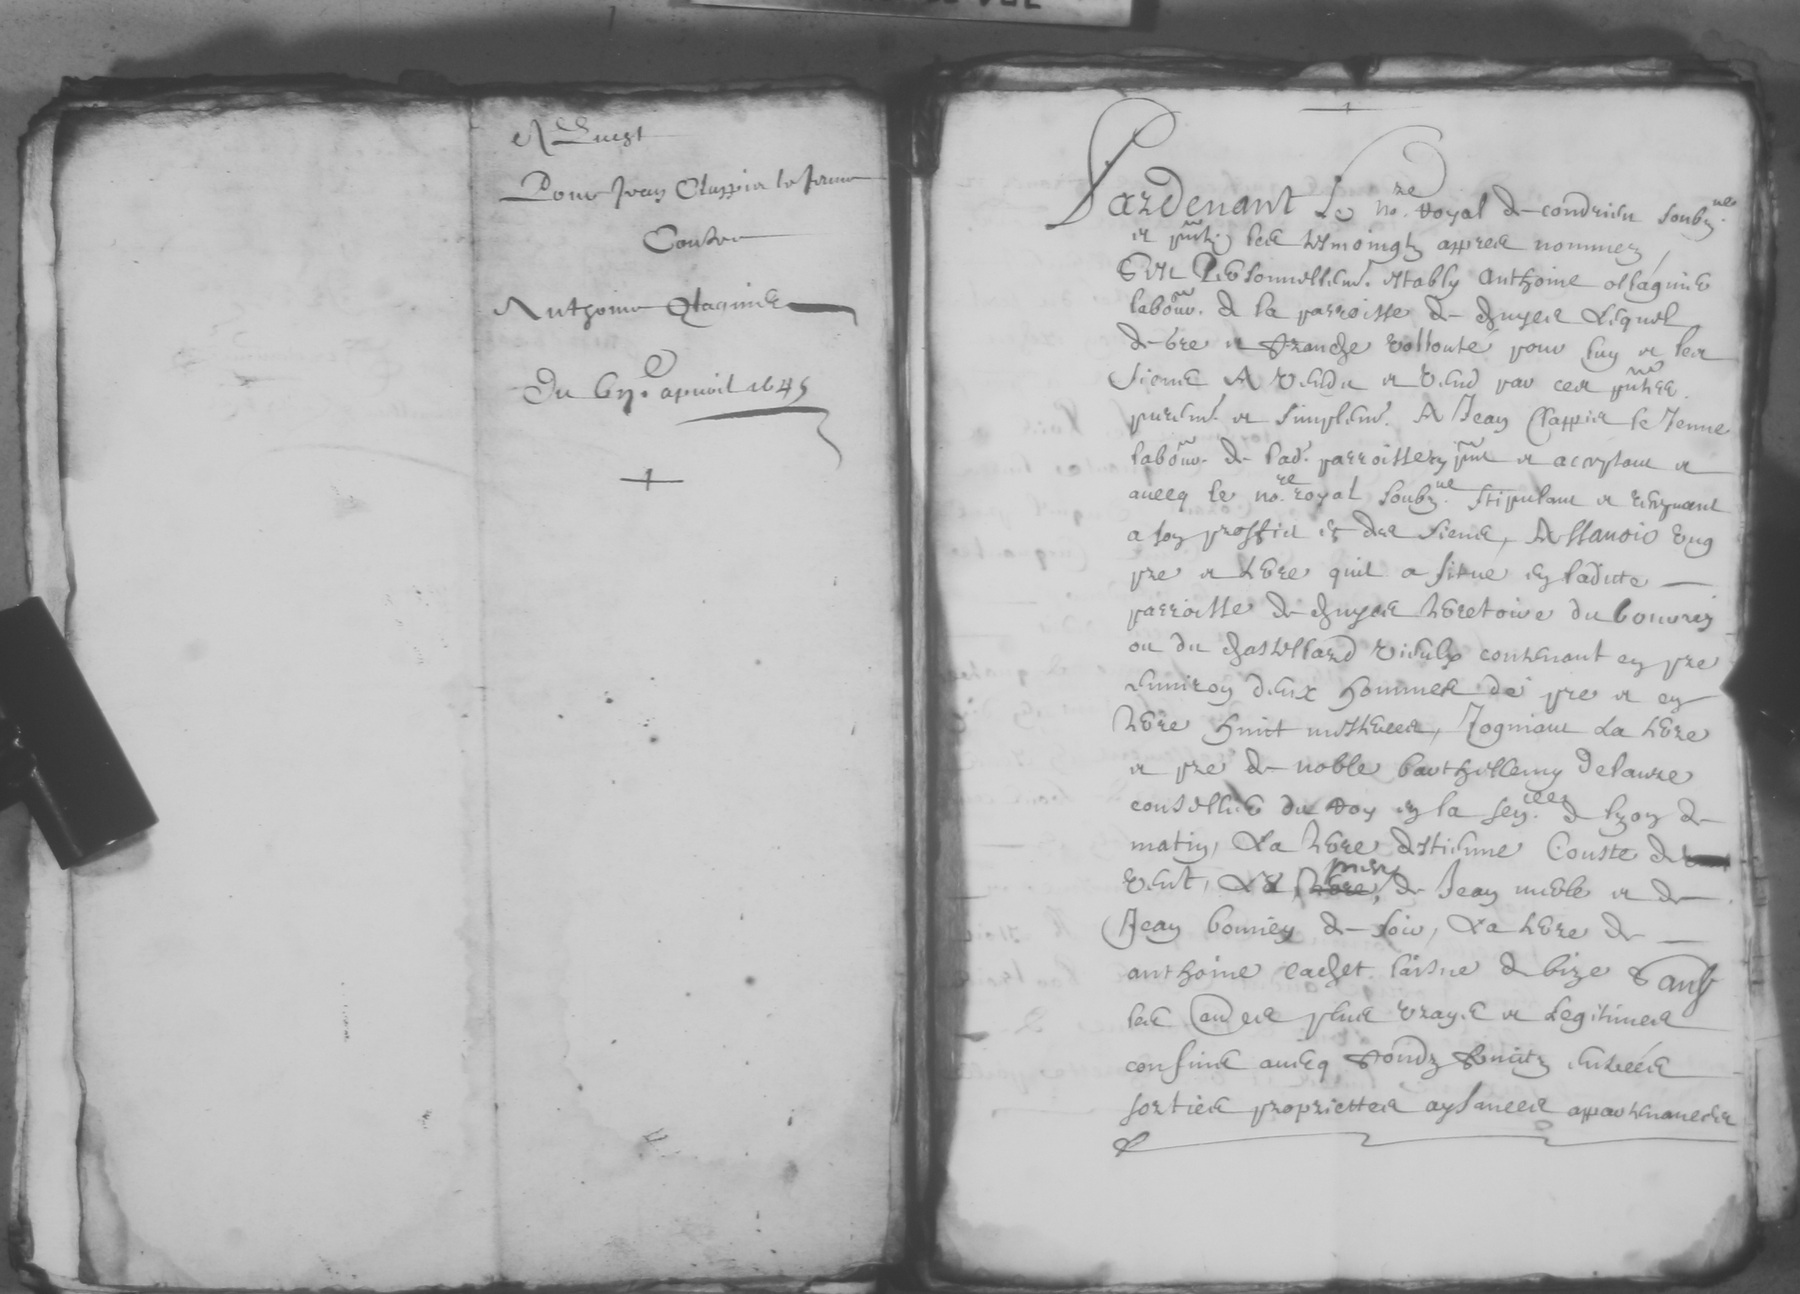 Pour Jean Clappier le jeune
Contre
Anthoine Ollagnier
Du apvril 1645
Pardevant le no.re Royal de condrieu soubz.né
et les tesmoingtz appres nommez
Fut Personnellem.t estably anthoine ollagnier
labour. de la parroisse de chuyes Lequel
de gre et franche vollonte pour luy et les
siens A vendu et vend par ces pntes
purem.t et simplem.t A Jean Clappier le Jeune
labour. de lad. parroisse pnt et acceptant et
avecq le no.re royal soubz.né stipulant et
a son proffict et des siens, Assavoir ung
pre et terre quil a situe en ladicte
parroisse de chuyes terretoire du
ou du chastellard vieulx contenant en pre
environ deux hommes de pre et en
terre huict mesterees, Jognant La terre
et pre de noble barthellemy Delaure
conseillier du Roy en la sen.cee de lyon de
matin, La terre destienne Couste de
vent, Le de Jean et de
Jean bonney de soir, La terre de
anthoine cachet laisne de bize Sauf
les plus vrayes et Legitimes
confins avecq fondz fruictz entrées
sorties proprietes aysances appartenances